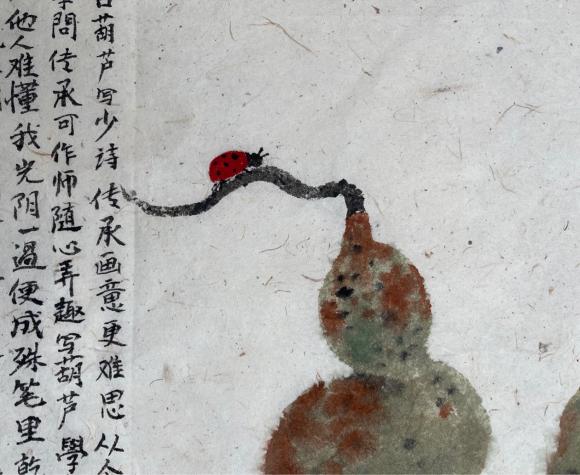 葫芦写少诗传承画意更难思从
问传承可作师随心弄趣写葫芦學
他人难懂我光阴一過便成殊笔里乾